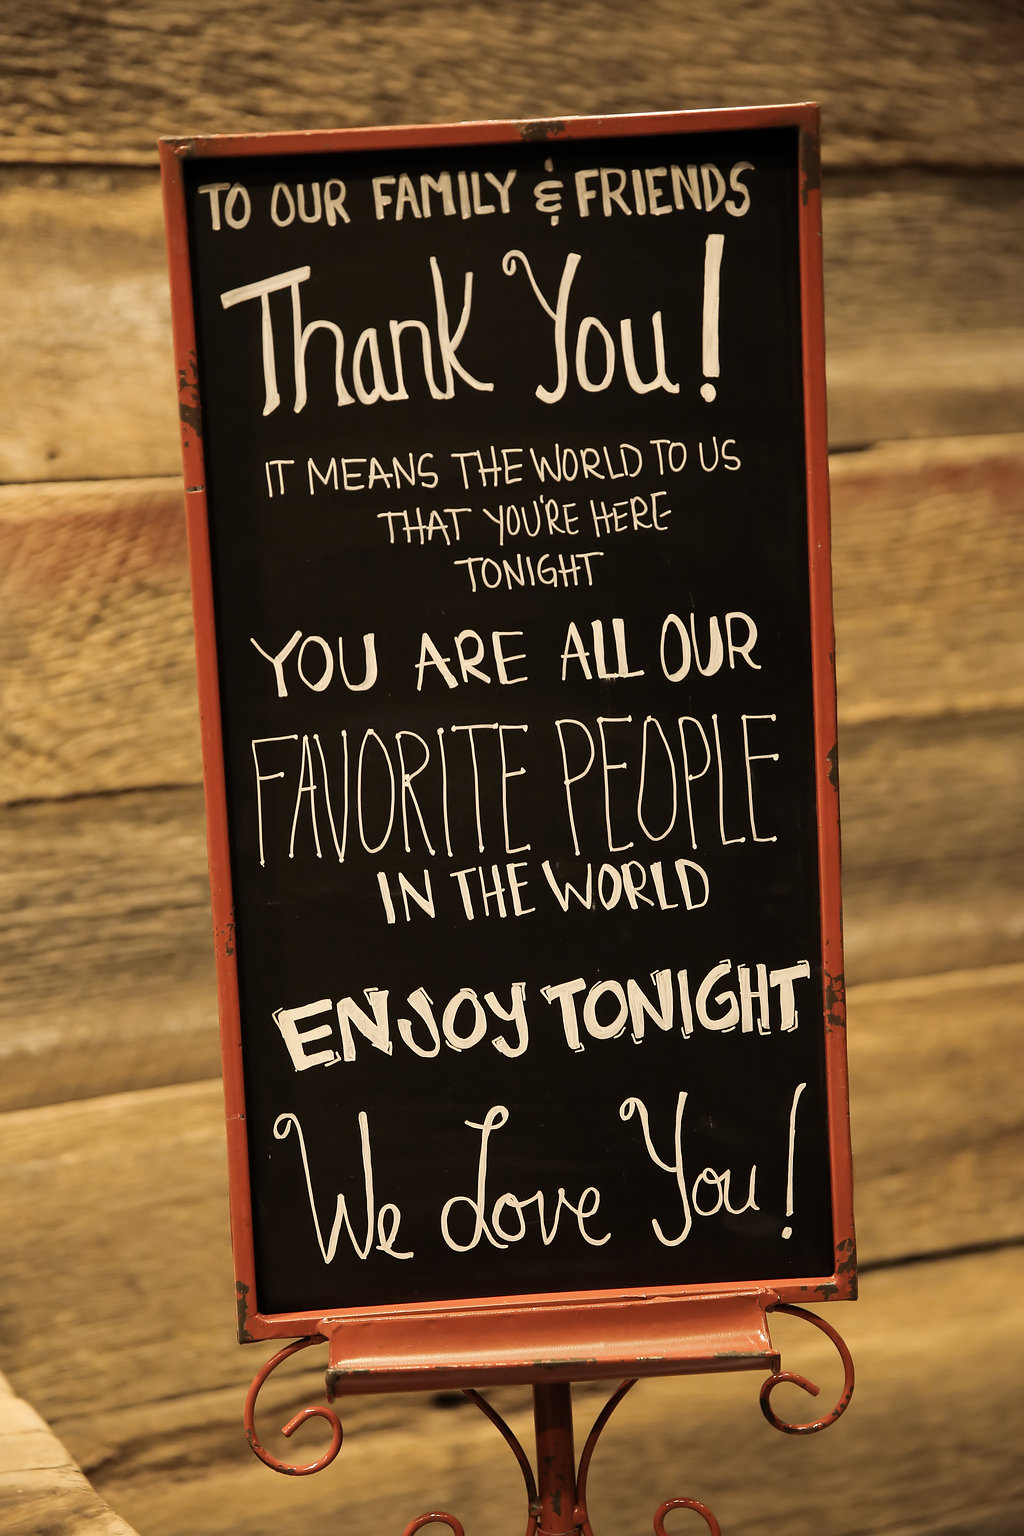 TO OUR FAMILY & FRIENDS
Thank You!
IT MEANS THE WORLD TO US
THAT YOU'RE HERE
TONIGHT
YOU ARE ALL OUR
FAVORITE PEOPLE
IN THE WORLD
ENJOY TONIGHT
We Love You!